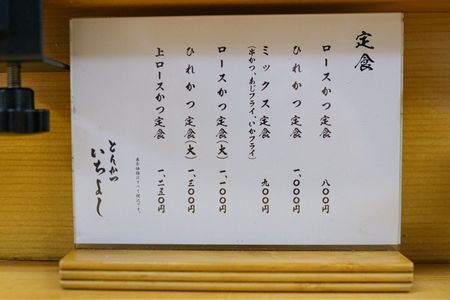 定食
ロースかつ定食 八〇〇円
ひれかつ定食 一、〇〇〇円
ミックス定食 九〇〇円
(串かつ、あじフライ、いかフライ)
ロースかつ定食(大) 一、一〇〇円
ひれかつ定食(大) 一、三〇〇円
上ロースかつ定食 一、二五〇円
とんかつ
いちよし